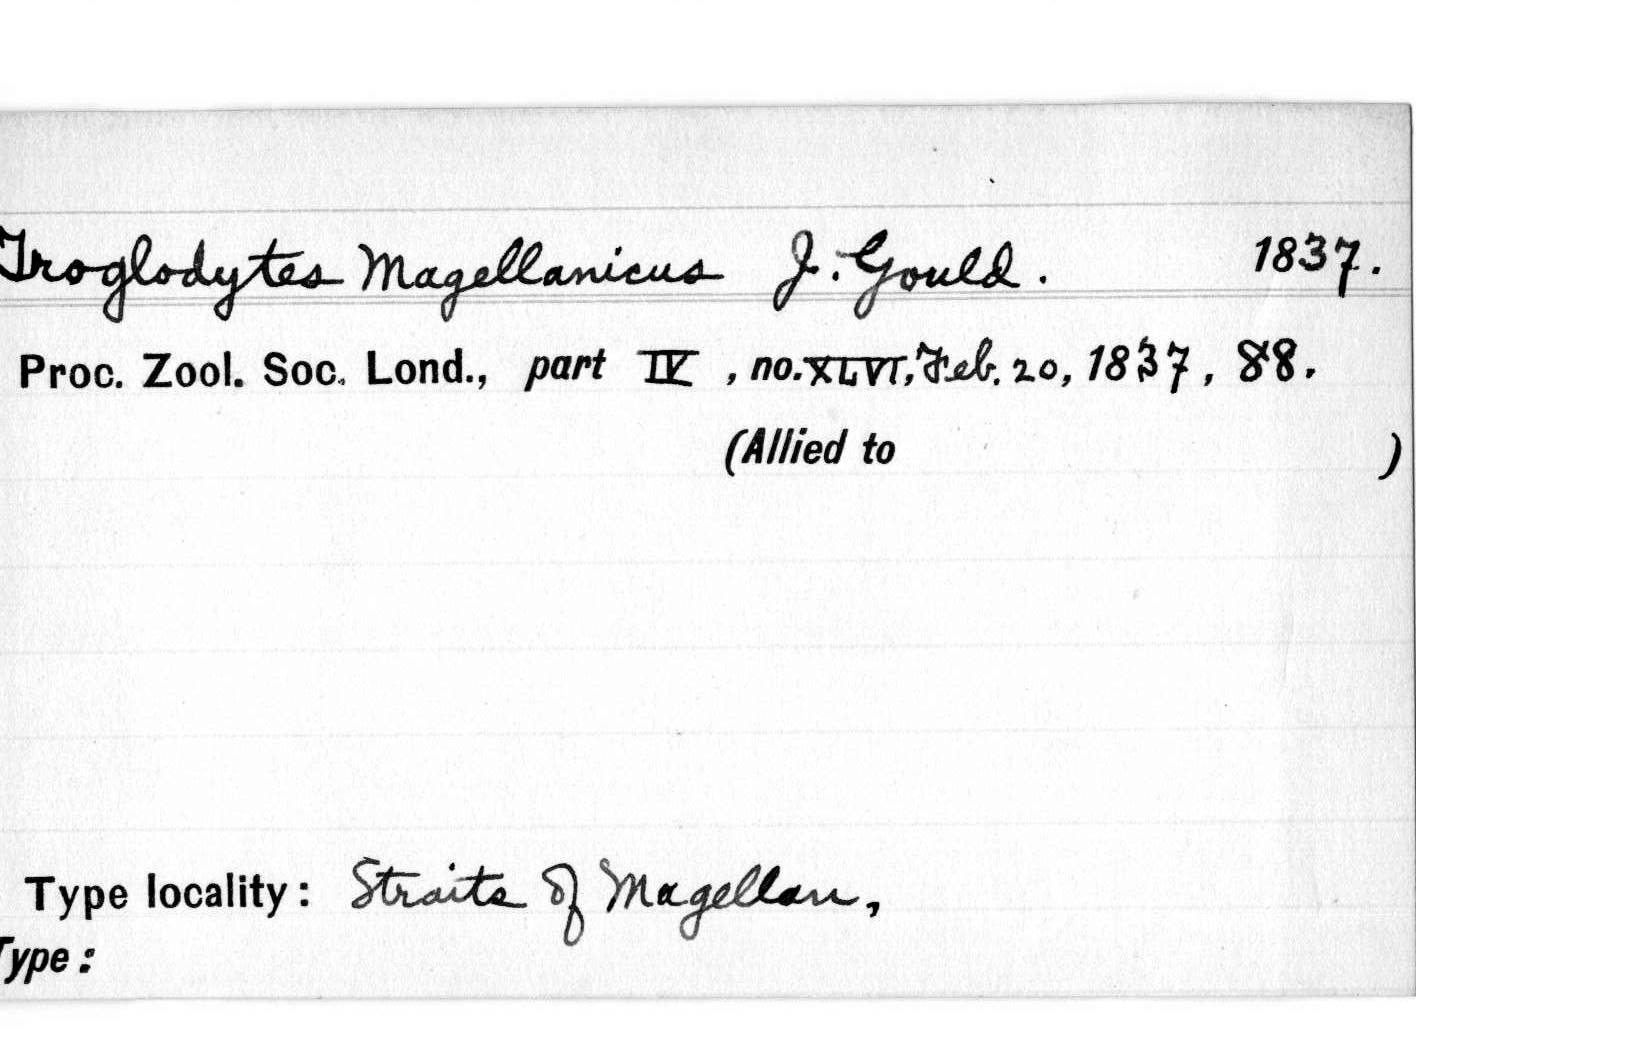 Troglodytes Magellanicus J. Gould. 1837.
Proc. Zool. Soc. Lond., part IV, no. XLVI, Feb. 20, 1837, 88.
(Allied to )
Type locality: Straits of Magellan,
Type: